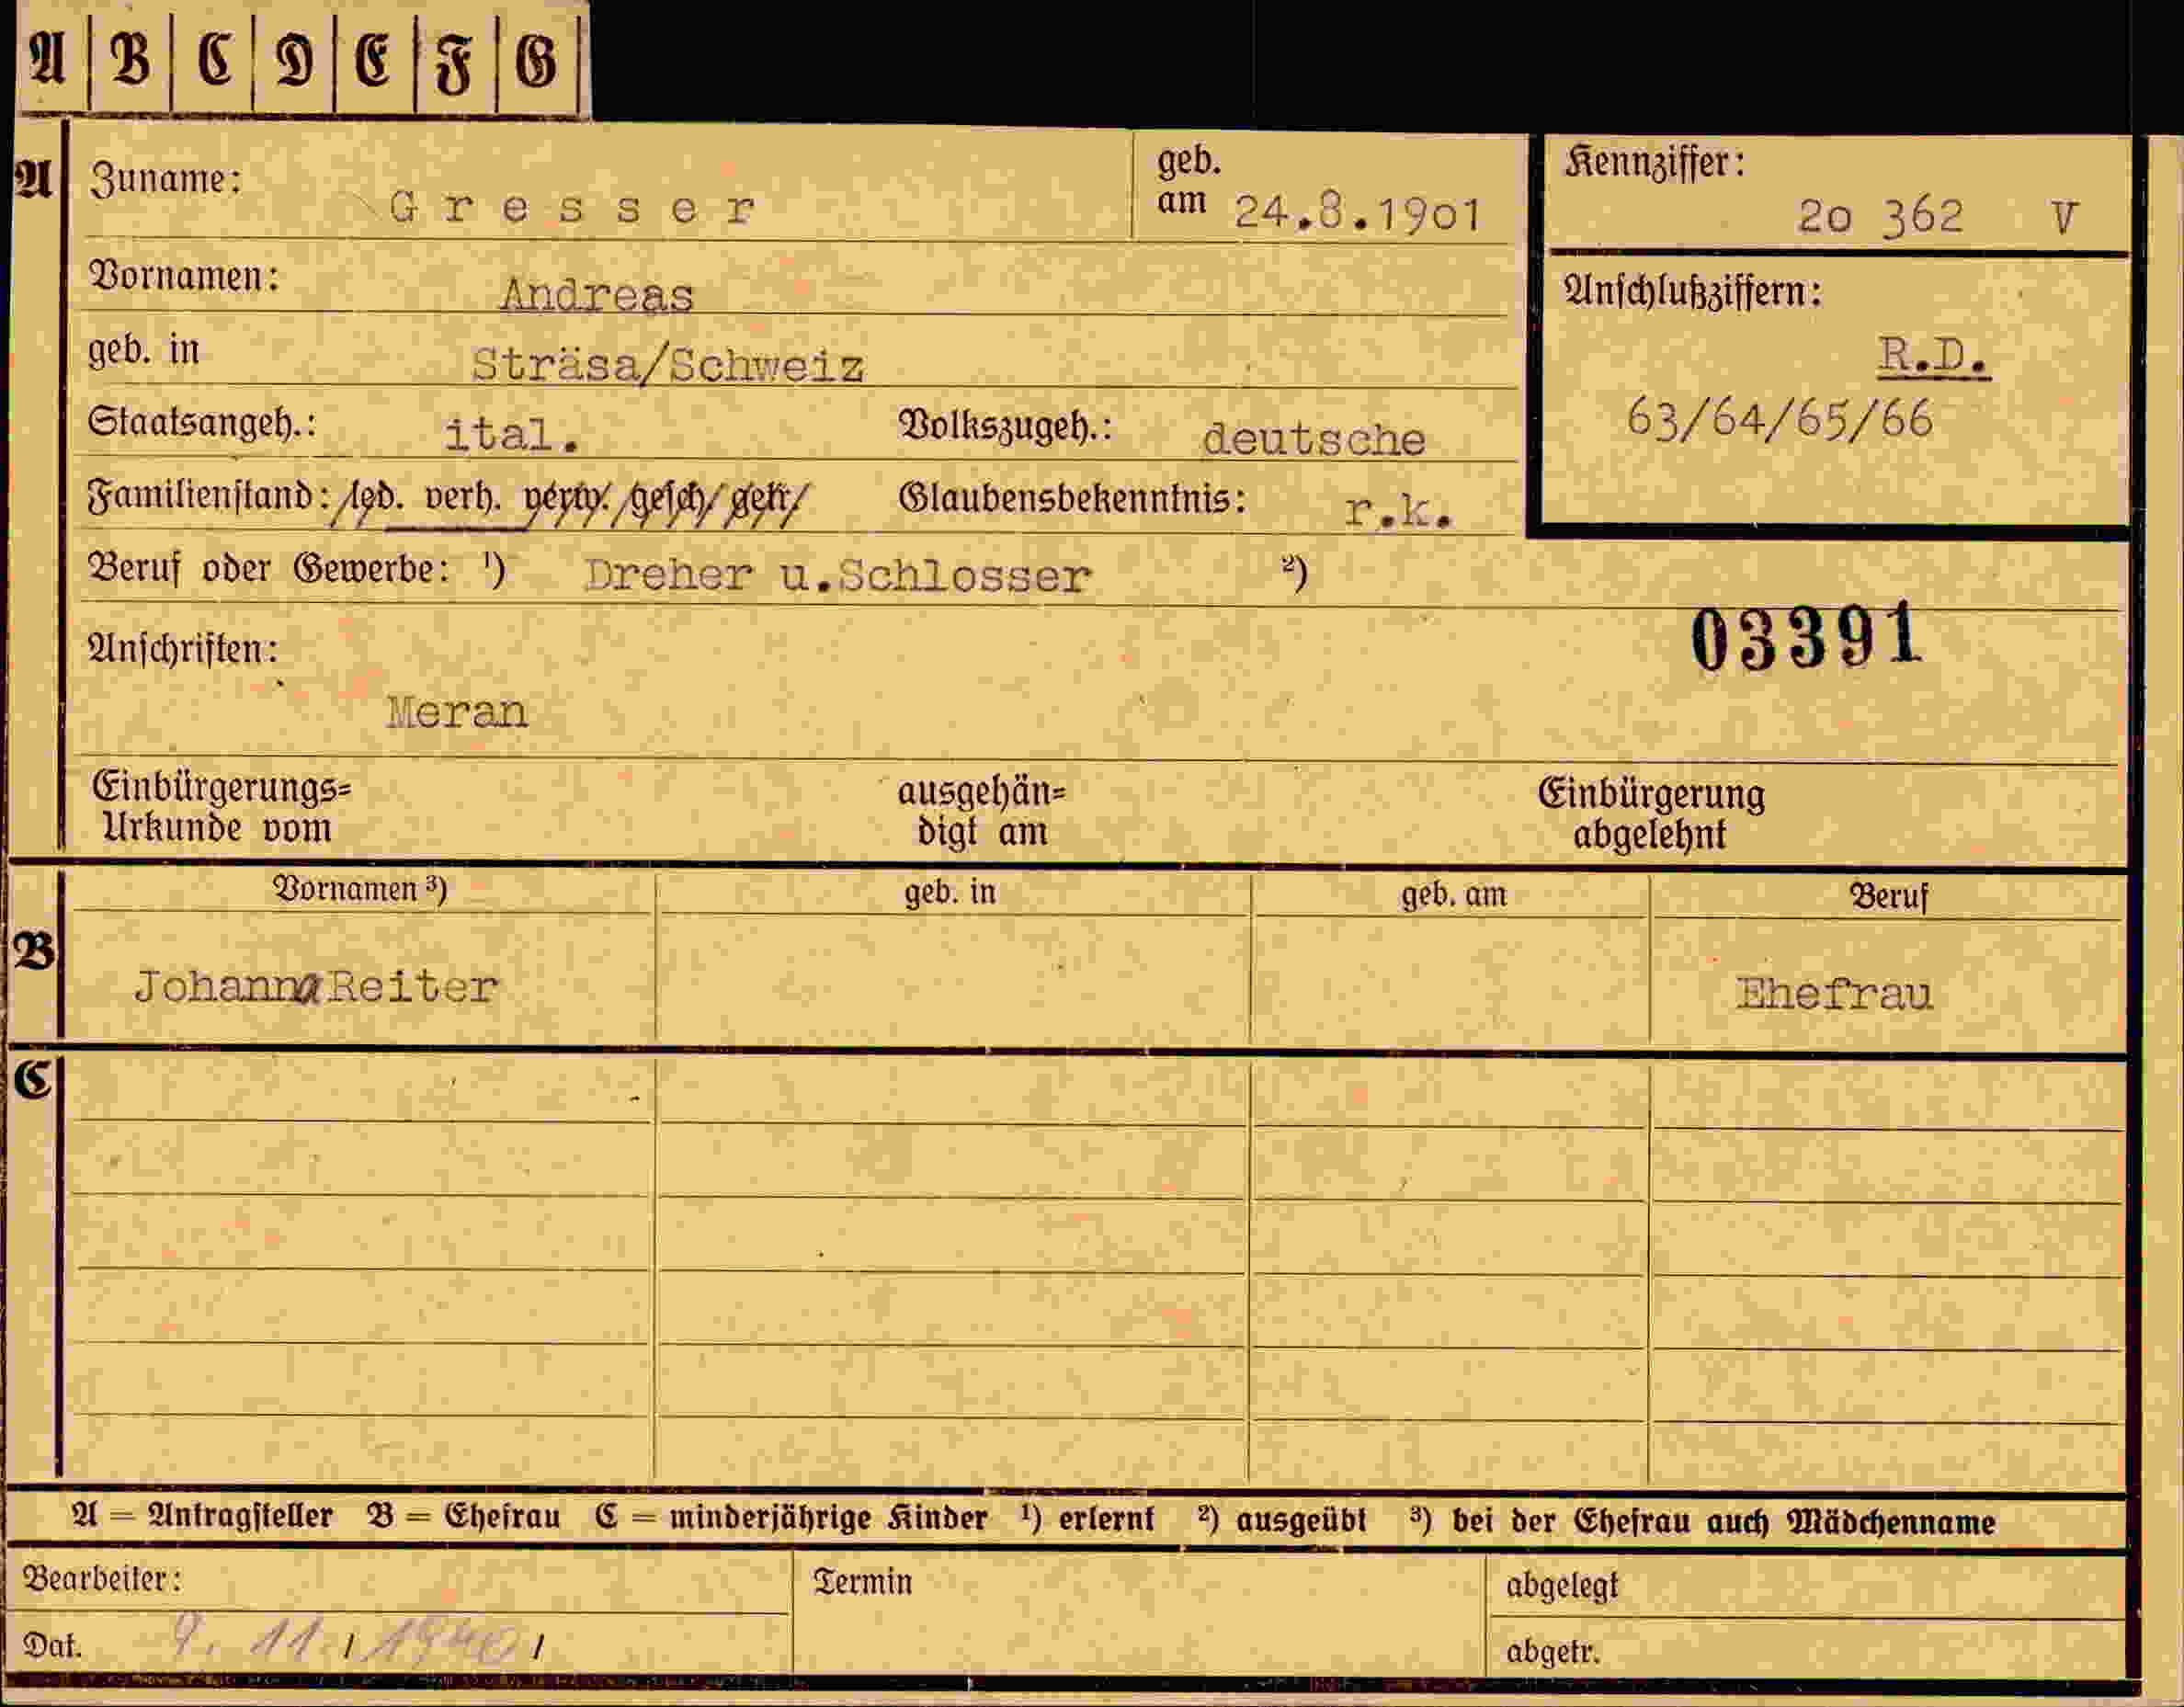 A B C D E F G
A Zuname: Gresser geb. am 24.8.1901 Kennziffer: 20 362 V
Vornamen: Andreas Anschlußziffern:
geb. in Sträsa/Schweiz R.D.
Staatsangeh.: ital. Volkszugeh.: deutsche 63/64/65/66
Familienstand: led. verh. verw. gesch. getr. Glaubensbekenntnis: r.k.
Beruf oder Gewerbe: 1) Dreher u.Schlosser 2)
03391
Anschriften:
Meran
Einbürgerungs= ausgehän= Einbürgerung
Urkunde vom digt am abgelehnt
Vornamen 3) geb. in geb. am Beruf
B Johanna Reiter Ehefrau
C
A = Antragsteller B = Ehefrau C = minderjährige Kinder 1) erlernt 2) ausgeübt 3) bei der Ehefrau auch Mädchenname
Bearbeiter: Termin abgelegt
Dat. 9. 11. 1940 abgetr.